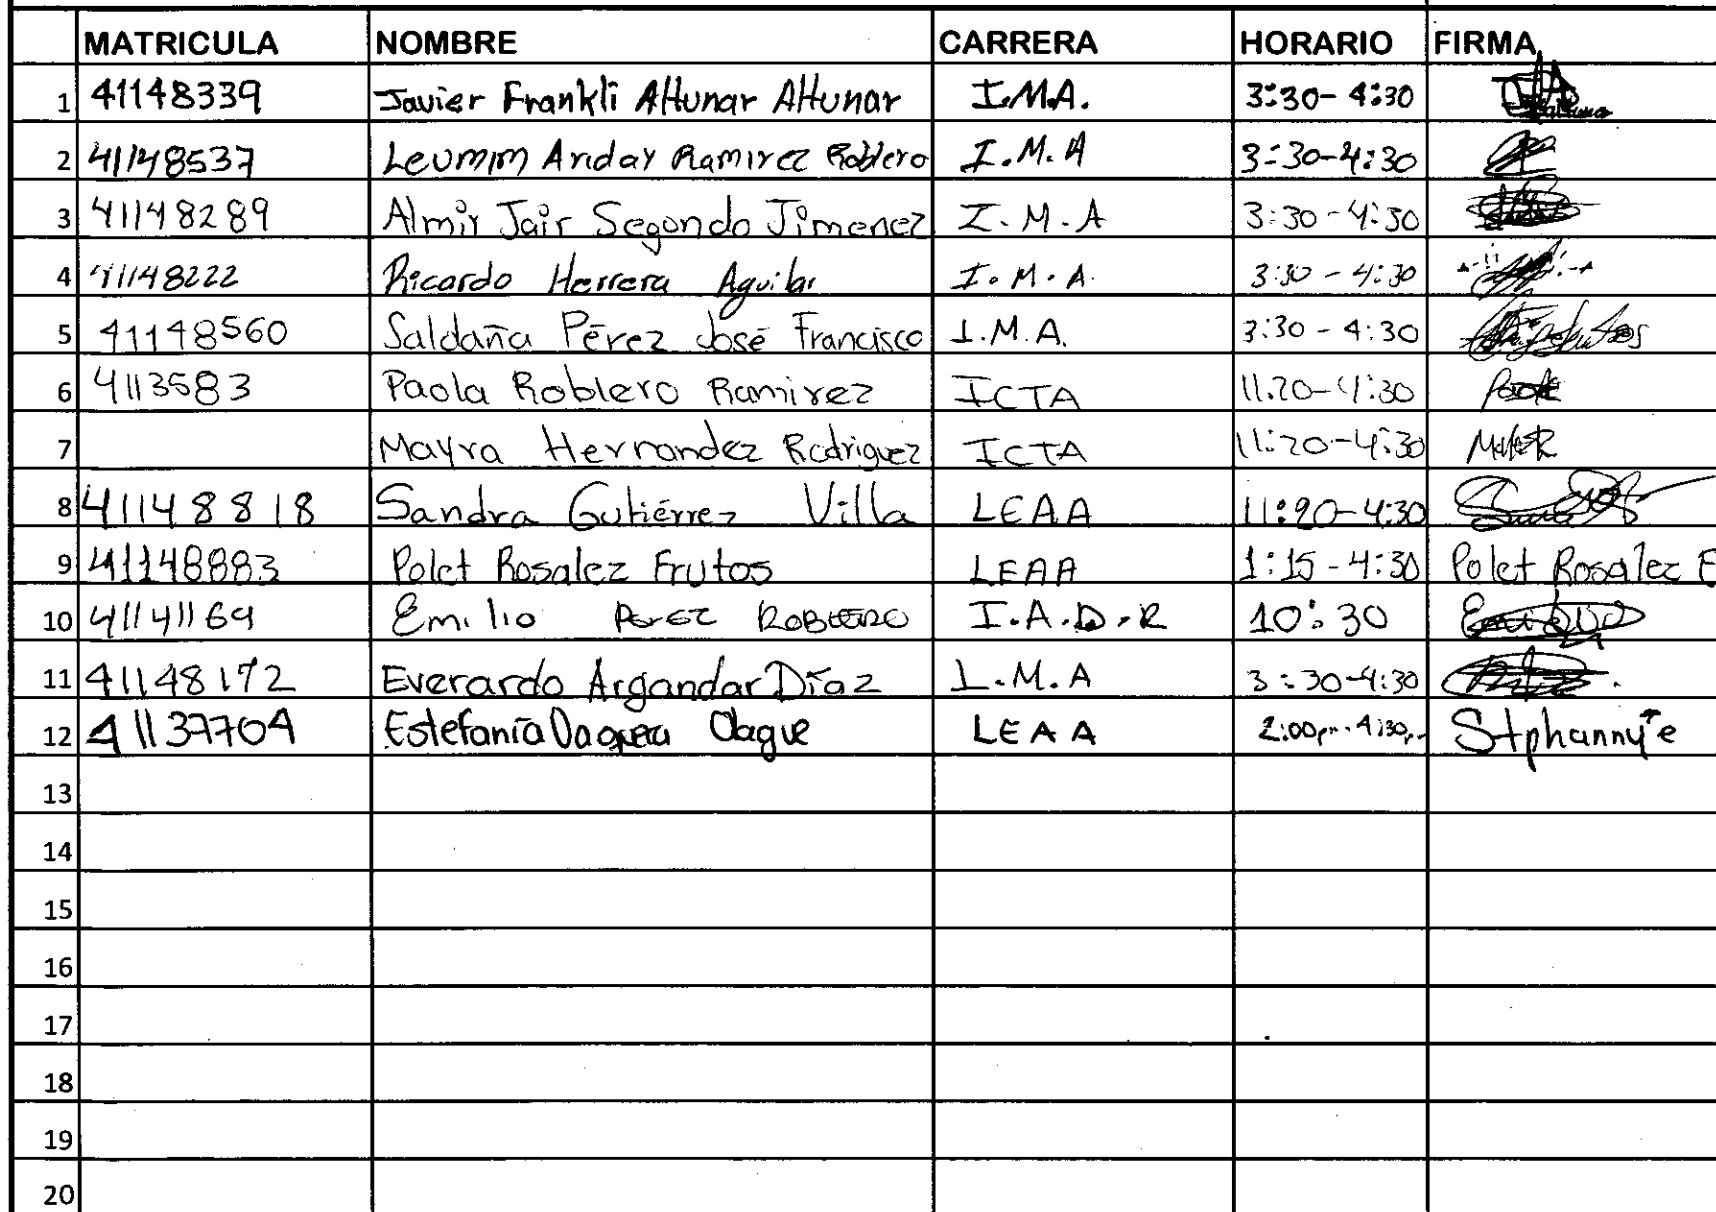 MATRICULA NOMBRE CARRERA HORARIO FIRMA
1 41148339 Javier Frankli Altunar Altunar I.M.A. 3:30-4:30
2 41148537 Leumim Anday Ramirez Roblero I.M.A 3:30-4:30
3 41148289 Almir Jair Segondo Jimenez I.M.A 3:30-4:30
4 41148222 Ricardo Herrera Aguilar I.M.A. 3:30-4:30
5 41148560 Saldaña Pérez José Francisco I.M.A. 3:30-4:30
6 4113583 Paola Roblero Ramirez ICTA 11:20-4:30
7 Mayra Hernandez Rodriguez ICTA 11:20-4:30
8 41148818 Sandra Gutiérrez Villa LEAA 11:20-4:30
9 41148883 Polet Rosalez Frutos LEAA 1:15-4:30 Polet Rosalez F
10 41141169 Emilio Perez ROBLERO I.A.D.R 10:30
11 41148172 Everardo Argandar Díaz I.M.A 3:30-4:30
12 41137704 Estefanía Olague LEAA 2:00pm-4:30pm Stphannyie
13
14
15
16
17
18
19
20